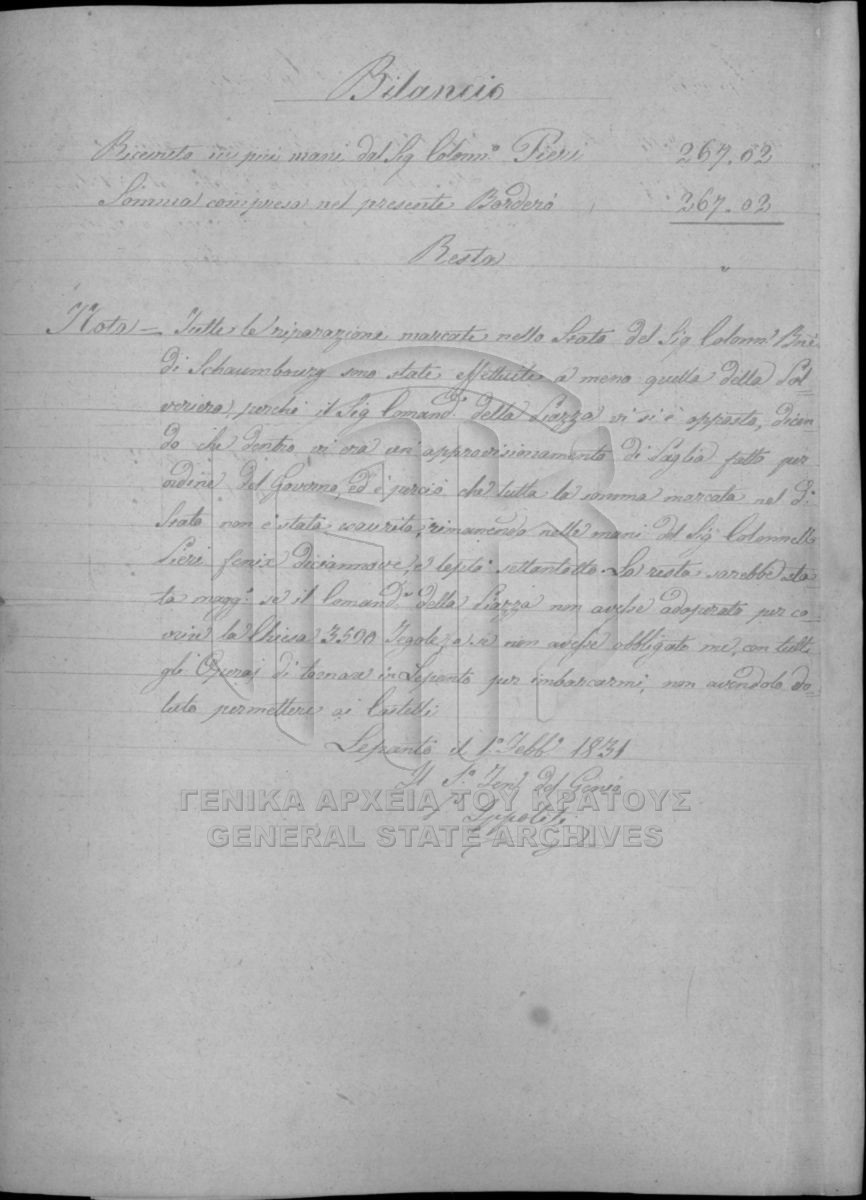 Bilancio
Ricevuto in più mani dal Sig Colonn.º Pieri 267.02
Somma compresa nel presente Borderò 267.02
Resta "
Nota — Tutte le riparazione marcate nello Stato del Sig Colonn.º
di Schaumbourg sono state effettuite a meno quella della Pol-
veriera, perchè il Sig Comand.e della Piazza vi si è opposto, dicen-
do che dentro vi era un' approvisionamento di Paglia fatto per
ordine del Governo, ed è perciò che tutta la somma marcata nel d.º
Stato non è stata esaurita, rimanendo nelle mani del Sig Colonnello
Pieri fenix diciannove, e lepta settantotto. La resta sarebbe sta-
ta magg.e se il Comand.e della Piazza non avesse adoperato per co-
vrire la Chiesa 3500 Tegole, e se non avesse obbligato me, con tutti
gli Operaj di tornare in Lepanto per imbarcarmi, non avendolo vo-
luto permettere ai Castelli
Lepanto il 1º Febbº 1831
Il S.º Ten.e del Genio
Ippoliti
ΓΕΝΙΚΑ ΑΡΧΕΙΑ ΤΟΥ ΚΡΑΤΟΥΣ
GENERAL STATE ARCHIVES